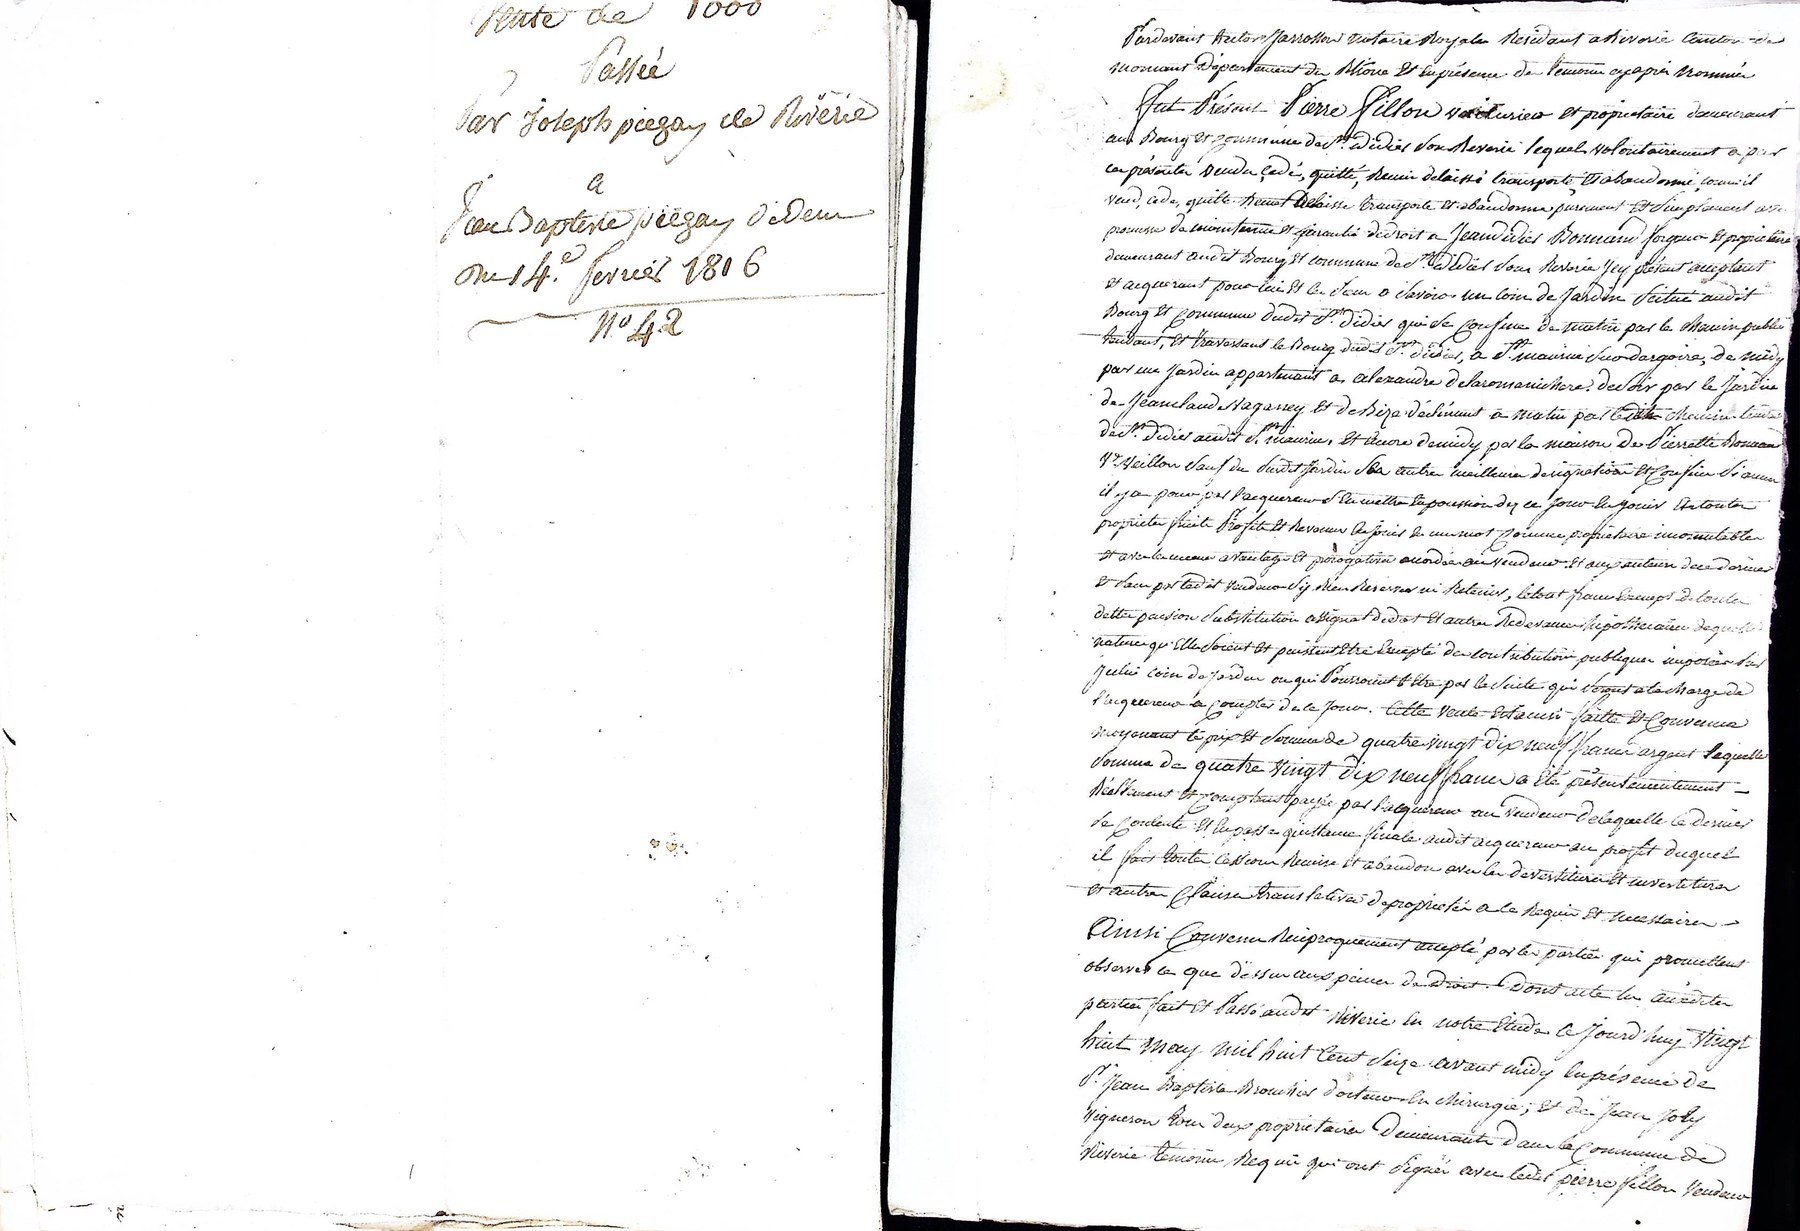 Vente de 1000
Passée
Par Joseph piegay de Riverie
a
Jean Baptiste piegay dedeur
du 14.e fevrier 1816
N.o 42
Pardevant Jarrosson notaire Royale Residant a Riverie Canton de
mornant Département du Rhône Et Enprésence de temoins cy apres Nommés
Fut Présent Pierre fillon voiturier et propriétaire demeurant
au Bourg et commune de St. didier sou Riverie lequel volontairement a par
ces présentes vendu, cedé, quitté, Remis delaissé transporte Et abandonné comme il
vend, cede, quitte Remet delaisse transporte et abandonne purement Et Simplement avec
promesse de maintenue et garantie dedroit a Jean didier Bonnand forgeur et proprietaire
demeurant audit Bourg Et commune de St. didier sous Riverie Icy présent acceptant
et acquerant pour lui Et les siens a Savoir un coin de Jardin Scitué audit
Bourg Et Commune dudit St. didier qui se confine de matin par le chemin public
tendant, Et traversant le Bourg dudit St. didier, a St. maurice sur dargoire, de midy
par un Jardin appartenant a alexandre delaromanichere. de soir par le Jardin
de Jeanclaude Vaganey Et de Bize déclinant a matin par ledit chemin tendant
de St. didier audit St. maurice, Et encore demidy par la maison de Pierrette Bonnand
Ve. Neillon sauf du surdit Jardin ses autres meilleures designations Et Confins si aucun
il y a pour par l'acquereur s'en mettre enpossession dez ce jour en jouir En toutes
proprietes fruits Profits Et Revenus en jouir en un mot Comme propriétaire incommutable
Et avec les memes avantages Et prérogatives accordés au vendeur Et aux auteurs de ce dernier
Et sans par ledit vendeur s'y Rien Reserver ni Retenir, letout franc Exempt de toutes
dettes pension substitution assignat dedot Et autres Redevances hipothecaires de quelle
nature qu'Elles soient Et puissent Etre Excepté des contributions publiques imposées sur
ledit coin de jardin ou qui Pourroient Etre par la Suite qui seront a la charge de
l'acquereur a compter de ce jour. Cette vente Est ainsi faitte Et Convenue
moyenant le prix Et Somme de quatre vingt dix neuf francs argent laquelle
Somme de quatre vingt dix neuf francs a été présentementement
Réellement Et Comptant payée par l'acquereur au vendeur de laquelle ce dernier
se contente Et En passe quittance finale audit acquereur au profit duquel
il fait toutes cessions Remise Et abandon avec les devestitures Et investitures
et autres Clauses translatives de proprietés a ce Requis Et necessaires
Ainsi Convenu Reciproquement accepté par les parties qui promettent
observer ce que dessus aux peines de Droit. Dont acte lu auxdites
parties fait Et Passé audit Riverie En notre Etude Ce Jourd'huy Vingt
huit may mil huit Cent Seize avant midy Enprésence de
Sr. Jean Baptiste Brouchier docteur En chirurgie, Et de Jean Joly
Vigneron tous deux proprietaires Demeurants dans la Commune de
Riverie temoins Requis qui ont signés avec ledit pierre fillon Vendeur